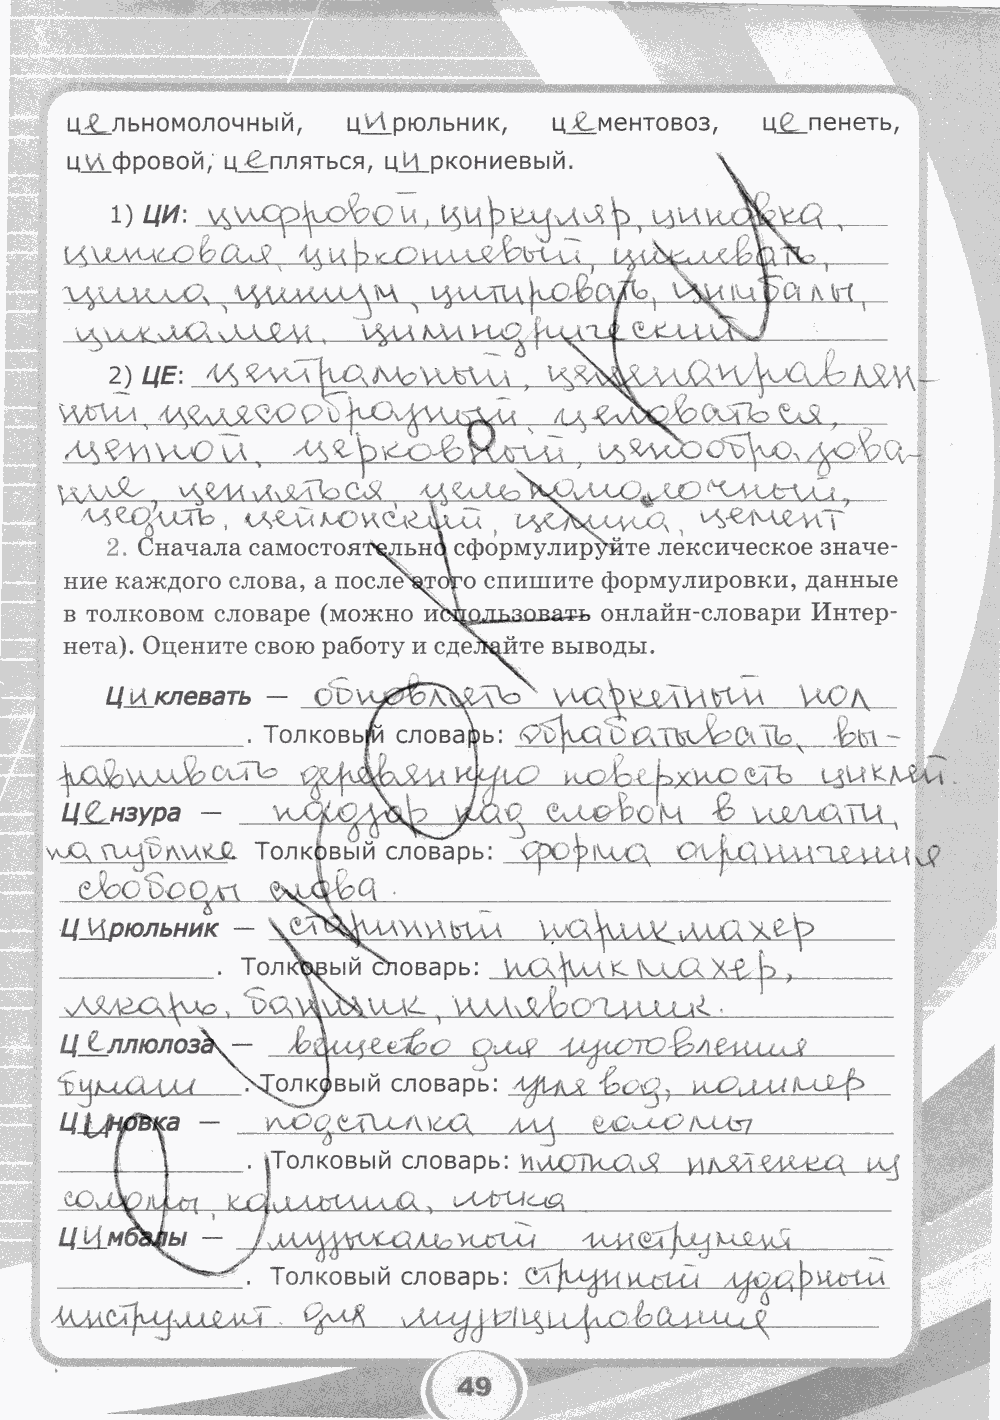 цельномолочный, цирюльник, цементовоз, цепенеть,
цифровой, цепляться, циркониевый.
1) ЦИ: цифровой, циркуляр, циновка,
цинковая, циркониевый, циклевать,
цинга, цинизм, цитировать, цимбалы,
цикламен, цилиндрический
2) ЦЕ: центральный, целенаправлен-
ный, целесообразный, целоваться,
ценной, церковный, ценообразова-
ние, цепляться, цельномолочный,
цедить, цейлонский, целина, цемент
2. Сначала самостоятельно сформулируйте лексическое значе-
ние каждого слова, а после этого спишите формулировки, данные
в толковом словаре (можно использовать онлайн-словари Интер-
нета). Оцените свою работу и сделайте выводы.
Циклевать — обновлять паркетный пол
. Толковый словарь: обрабатывать, вы-
равнивать деревянную поверхность циклей.
Цензура — надзор над словом в печати,
на публике. Толковый словарь: форма ограничения
свободы слова.
Цирюльник — старинный парикмахер
. Толковый словарь: парикмахер,
лекарь, банщик, пиявочник.
Целлюлоза — вещество для изготовления
бумаги. Толковый словарь: углевод, полимер
Циновка — подстилка из соломы
. Толковый словарь: плотная плетенка из
соломы, камыша, лыка
Цимбалы — музыкальный инструмент
. Толковый словарь: струнный ударный
инструмент для музыцирования
49